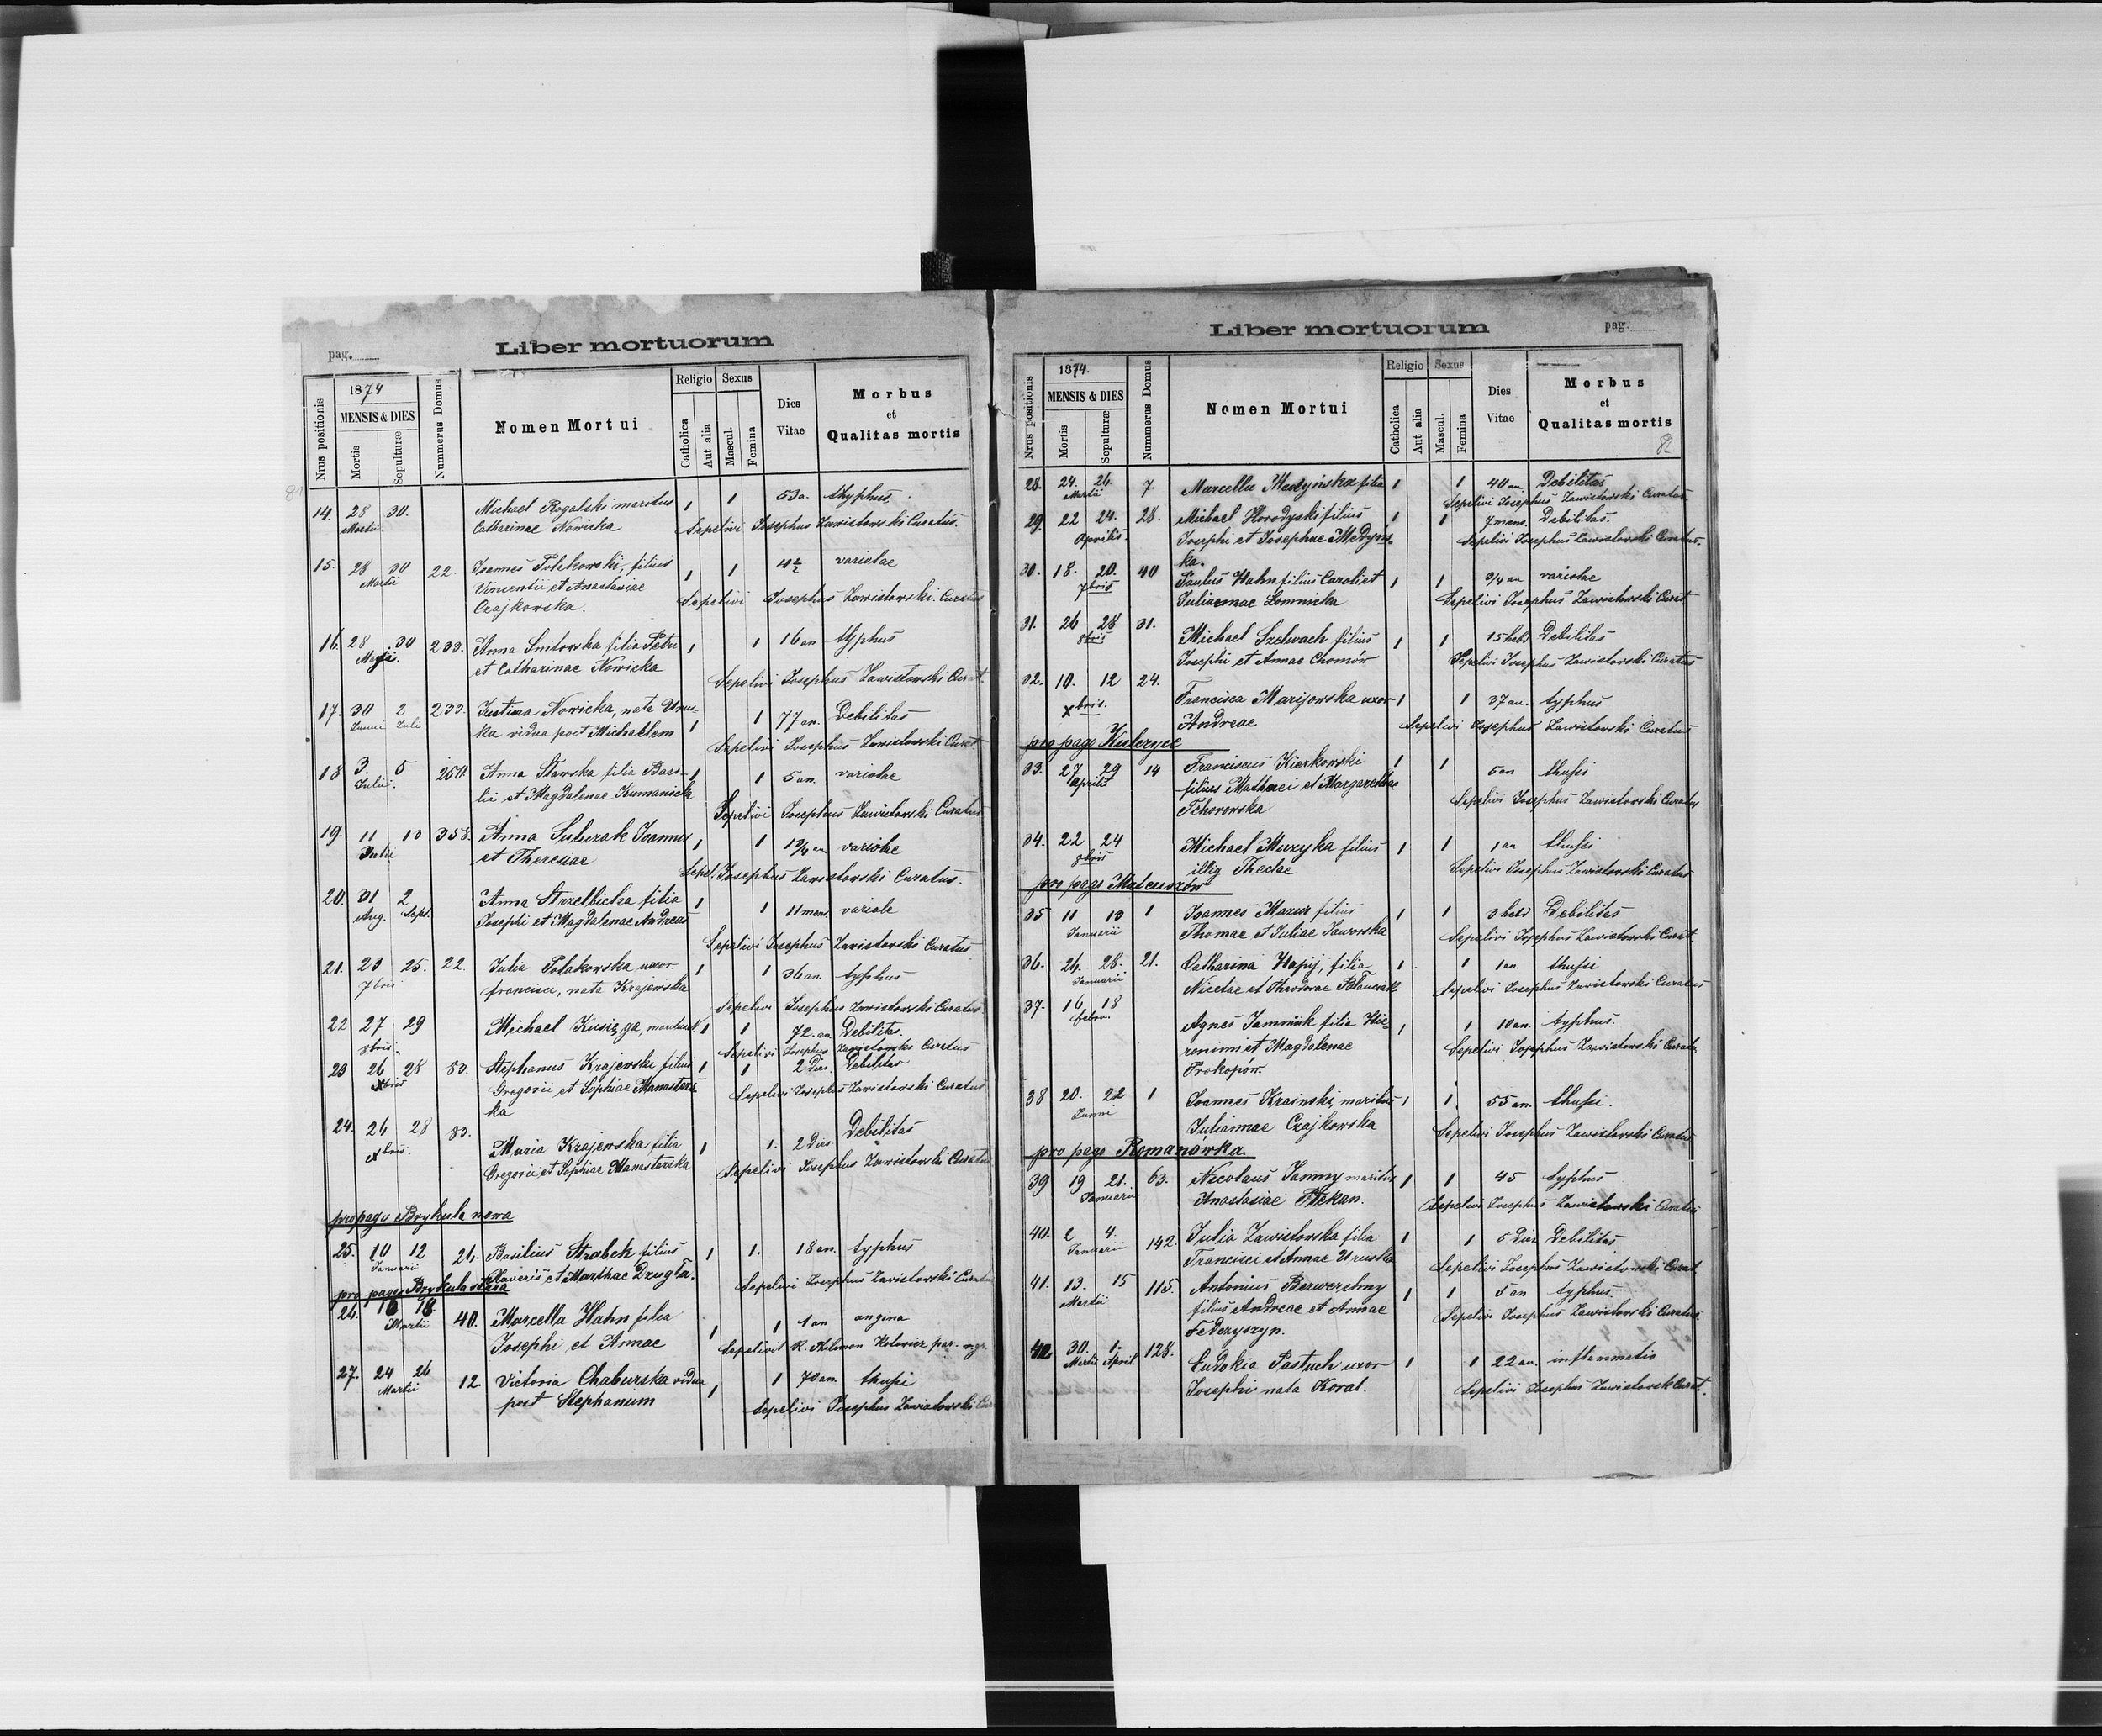 Liber mortuorum
pag.
Nrus positionis
1874
MENSIS & DIES
Mortis
Sepulturæ
Nummerus Domus
Nomen Mortui
Religio
Catholica
Aut alia
Sexus
Mascul.
Femina
Dies
Vitae
Morbus
et
Qualitas mortis
81
14. 28 30. Michael Rogalski maritus 1 1 53 a. thyphus.
Martii. Catharinae Nowicka Sepelivi Josephus Zawistowski Curatus.
15. 28 30 22. Joannes Polakowski, filius 1 1 4½ variolae
Martii Vincentii et Anastasiae
Czajkowska. Sepelivi Josephus Zawistowski Curatus
16. 28 30 233. Anna Snitowska filia Petri 1 1 16 an typhus
et Catharinae Nowicka Sepelivi Josephus Zawistowski Curat.
17. 30 2 233. Justina Nowicka, nata Urus- 1 1 77 an. Debilitas
Junii Julii ka vidua post Michaelem Sepelivi Josephus Zawistowski Curat
18 3. 5 250. Anna Stawska filia Basi- 1 1 5 an. variolae
Julii. lii et Magdalenae Kumanicka Sepelivi Josephus Zawistowski Curatus
19. 11 13 358. Anna Joannes 1 1 an variolae
Julii et Theresiae Sepel. Josephus Zawistowski Curatus.
20. 31 2 Anna Strzelbicka filia 1 1 11 mens. variole
Aug. Sept. Josephi et Magdalenae Andreas Sepelivi Josephus Zawistowski Curatus
21. 23 25. 22. Julia Polakowska uxor 1 1 36 an. typhus
7bris francisci, nata Krajewska Sepelivi Josephus Zawistowski Curatus.
22 27 29 Michael 1 1 72. an. Debilitas.
8bris. Sepelivi Josephus Zawistowski Curatus
23 26 28 83. Stephanus Krajewski filius 1 1 2 Dies. Debilitas
Xbris Gregorii et Sophiae Manasters- Sepelivi Josephus Zawistowski Curatus
ka
24. 26 28 83. Maria Krajewska filia 1 1. 2 Dies Debilitas
Xbris. Gregorii et Sophiae Manasterska Sepelivi Josephus Zawistowski Curatus
pro pago Brykula nowa
25. 10 12 21. Basilius Strabek filius 1 1. 18 an. typhus
Januarii et Marthae Dzugła. Sepelivi Josephus Zawistowski Curatus
pro pago Brykula stara
26. 16 18 40. Marcella Hahn filia 1 1 1 an angina
Martii Josephi et Annae Sepelivit R.
27. 24 26 12. Victoria Chaburska vidua 1 1 70 an. thussi
Martii post Stephanum Sepelivi Josephus Zawistowski Cur
Liber mortuorum
pag.
Nrus positionis
1874.
MENSIS & DIES
Mortis
Sepulturæ
Nummerus Domus
Nomen Mortui
Religio
Catholica
Aut alia
Sexus
Mascul.
Femina
Dies
Vitae
Morbus
et
Qualitas mortis
82
28. 24. 26. 7. Marcella Medyńska filia 1 1 40 an. Debilitas
Martii Sepelivi Josephus Zawistowski Curatus
29. 22 24. 28. Michael Horodyski filius 1 1 7 mens. Debilitas.
Aprilis. Josephi et Josephae Medyńs- Sepelivi Josephus Zawistowski Curatus.
ka.
30. 18. 20. 40 Paulus Hahn filius Caroli et 1 1 9/4 an variolae
7bris Juliannae Lomnicka Sepelivi Josephus Zawistowski Curat.
31. 26 28 31. Michael Szelwach filius 1 1 15 hebd Debilitas
8bris Josephi et Annae Chomów Sepelivi Josephus Zawistowski Curatus
32. 10. 12 24. Francisca Marijowska uxor 1 1 37 an. typhus
Xbris. Andreae Sepelivi Josephus Zawistowski Curatus
pro pago Kulczyce
33. 27 29 14 Franciscus Kierkowski 1 1 5 an thussi
Aprilis filius Mathaei et Margarethae Sepelivi Josephus Zawistowski Curatus
Tchorowska
34. 22 24 Michael Muzyka filius 1 1 1 an thussi
8bris illig Theclae Sepelivi Josephus Zawistowski Curatus
pro pago Mateuszów
35 11 13 1 Joannes Mazur filius 1 1 3 hebd Debilitas
Januarii Thomae et Juliae Jaworska Sepelivi Josephus Zawistowski Curat.
36. 26. 28. 21. Catharina Hapij, filia 1 1 1 an. thussi
Januarii Nicetae et Theodorae Sepelivi Josephus Zawistowski Curatus
37. 16 18 Agnes Jamniuk filia Hie- 1 1 10 an. typhus.
febru. ronimi et Magdalenae Sepelivi Josephus Zawistowski Curatu
Prokopów.
38 20. 22 1 Joannes Krainski, maritus 1 1. 55 an. thussi.
Junii Juliannae Czajkowska Sepelivi Josephus Zawistowski Curatus
pro pago Romanówka.
39 19 21. 63. Nicolaus Jamny maritus 1 1 45 typhus
Januarii Anastasiae Stekan. Sepelivi Josephus Zawistowski Curatus
40. 2 4. 142. Julia Zawistowska filia 1 1 5 Dies Debilitas
Januarii Francisci et Annae Uruska Sepelivi Josephus Zawistowski Curat
41. 13. 15 115. Antonius Bezwerchny 1 1 5 an typhus.
Martii filius Andreae et Annae Sepelivi Josephus Zawistowski Curatus
Fedczyszyn.
42 30. 1. 128. Eudokia Pastuch uxor 1 1 22 an. inflammatio
Martii April. Josephi nata Koval. Sepelivi Josephus Zawistowsk Curat.